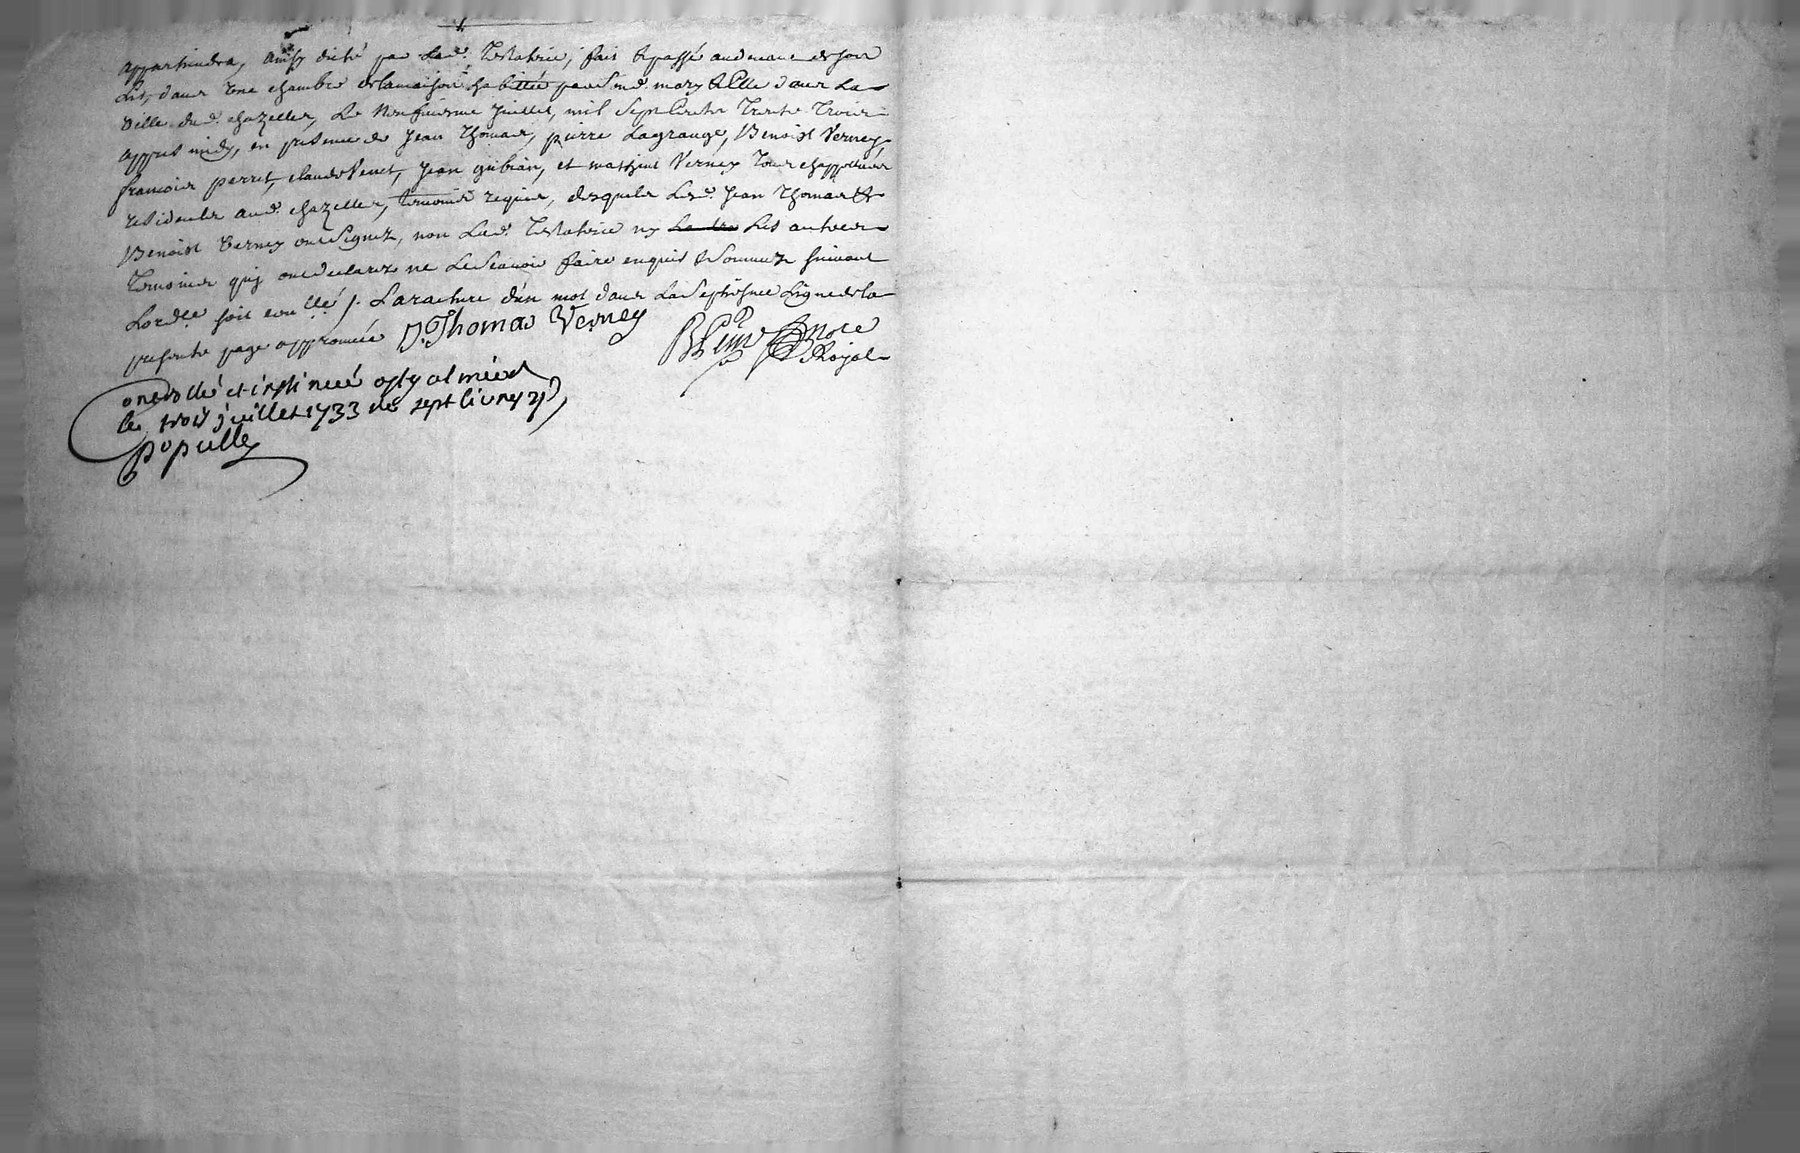 appartiendra, ainsy dicté par lad. Testatrice, fait & passé audevant de son
Lit, dans Une chambre de la maison habittée par Sond. mary & Elle dans La
Ville dud. chazelles, Le Neufuiesme Juillet, mil Sept Cents Trente Trois
appres midy, en presence de Jean Thomas, pierre Lagrange, Benoist Verney,
francois perret, claude Venet, Jean guibian, et mathieu Verney Tous chappelliers
residents aud. chazelles, temoins requis, desquels Lesd. Jean Thomas &
Benoist Verney ont Signez, non Lad. Testatrice ny Les autres
Temoins quy ont declarez ne Le Scavoir faire enquis & Sommez suivant
Lordce. soit conllé /. La rature d'un mot dans La Septiesme Ligne de la
presente page approuvée J. Thomas Verney
Nore
Royal
controllé et insinué a
le trois juillet 1733 sept livres
populle